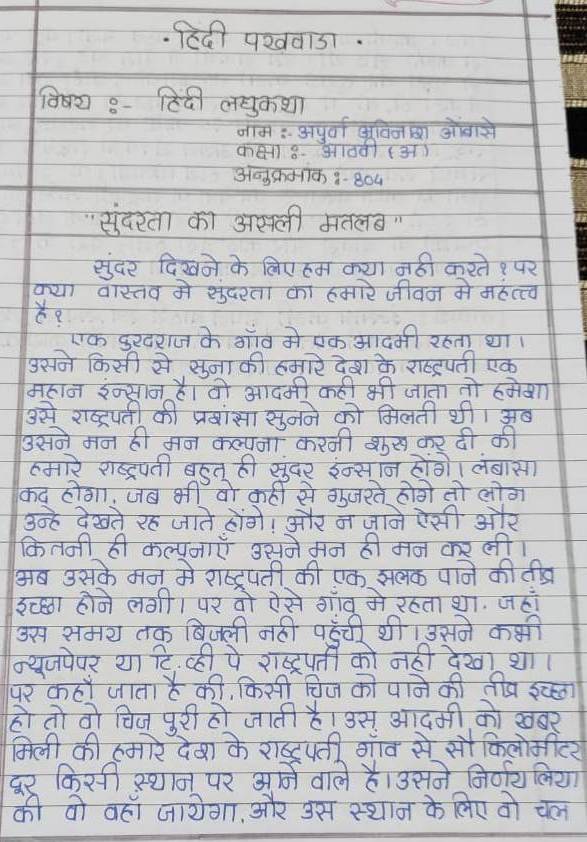 · हिंदी पखवाडा ·
विषय :- हिंदी लघुकथा
नाम :- अपुर्वा अविनाश ओंबासे
कक्षा :- आठवी (अ)
अनुक्रमांक :- 804
"सुंदरता का असली मतलब"
सुंदर दिखने के लिए हम क्या नही करते ? पर
क्या वास्तव मे सुंदरता का हमारे जीवन मे महत्त्व
है ?
एक दुरदराज के गाँव मे एक आदमी रहता था।
उसने किसी से सुना की हमारे देश के राष्ट्रपती एक
महान इन्सान है। वो आदमी कही भी जाता तो हमेशा
उसे राष्ट्रपती की प्रशंसा सुनने को मिलती थी। अब
उसने मन ही मन कल्पना करनी शुरू कर दी की
हमारे राष्ट्रपती बहुत ही सुंदर इन्सान होंगे। लंबासा
कद होगा, जब भी वो कही से गुजरते होगे तो लोग
उन्हे देखते रह जाते होंगे! और न जाने ऐसी और
कितनी ही कल्पनाएँ उसने मन ही मन कर ली।
अब उसके मन मे राष्ट्रपती की एक झलक पाने की तीव्र
इच्छा होने लगी। पर वो ऐसे गाँव मे रहता था, जहाँ
उस समय तक बिजली नही पहुँची थी। उसने कभी
न्यूजपेपर या टि.व्ही पे राष्ट्रपती को नही देखा था।
पर कहाँ जाता है की, किसी चिज को पाने की तीव्र इच्छा
हो तो वो चिज पुरी हो जाती है। उस आदमी को खबर
मिली की हमारे देश के राष्ट्रपती गाँव से सौ किलोमीटर
दूर किसी स्थान पर आने वाले है। उसने निर्णय लिया
की वो वहाँ जायेगा, और उस स्थान के लिए वो चल